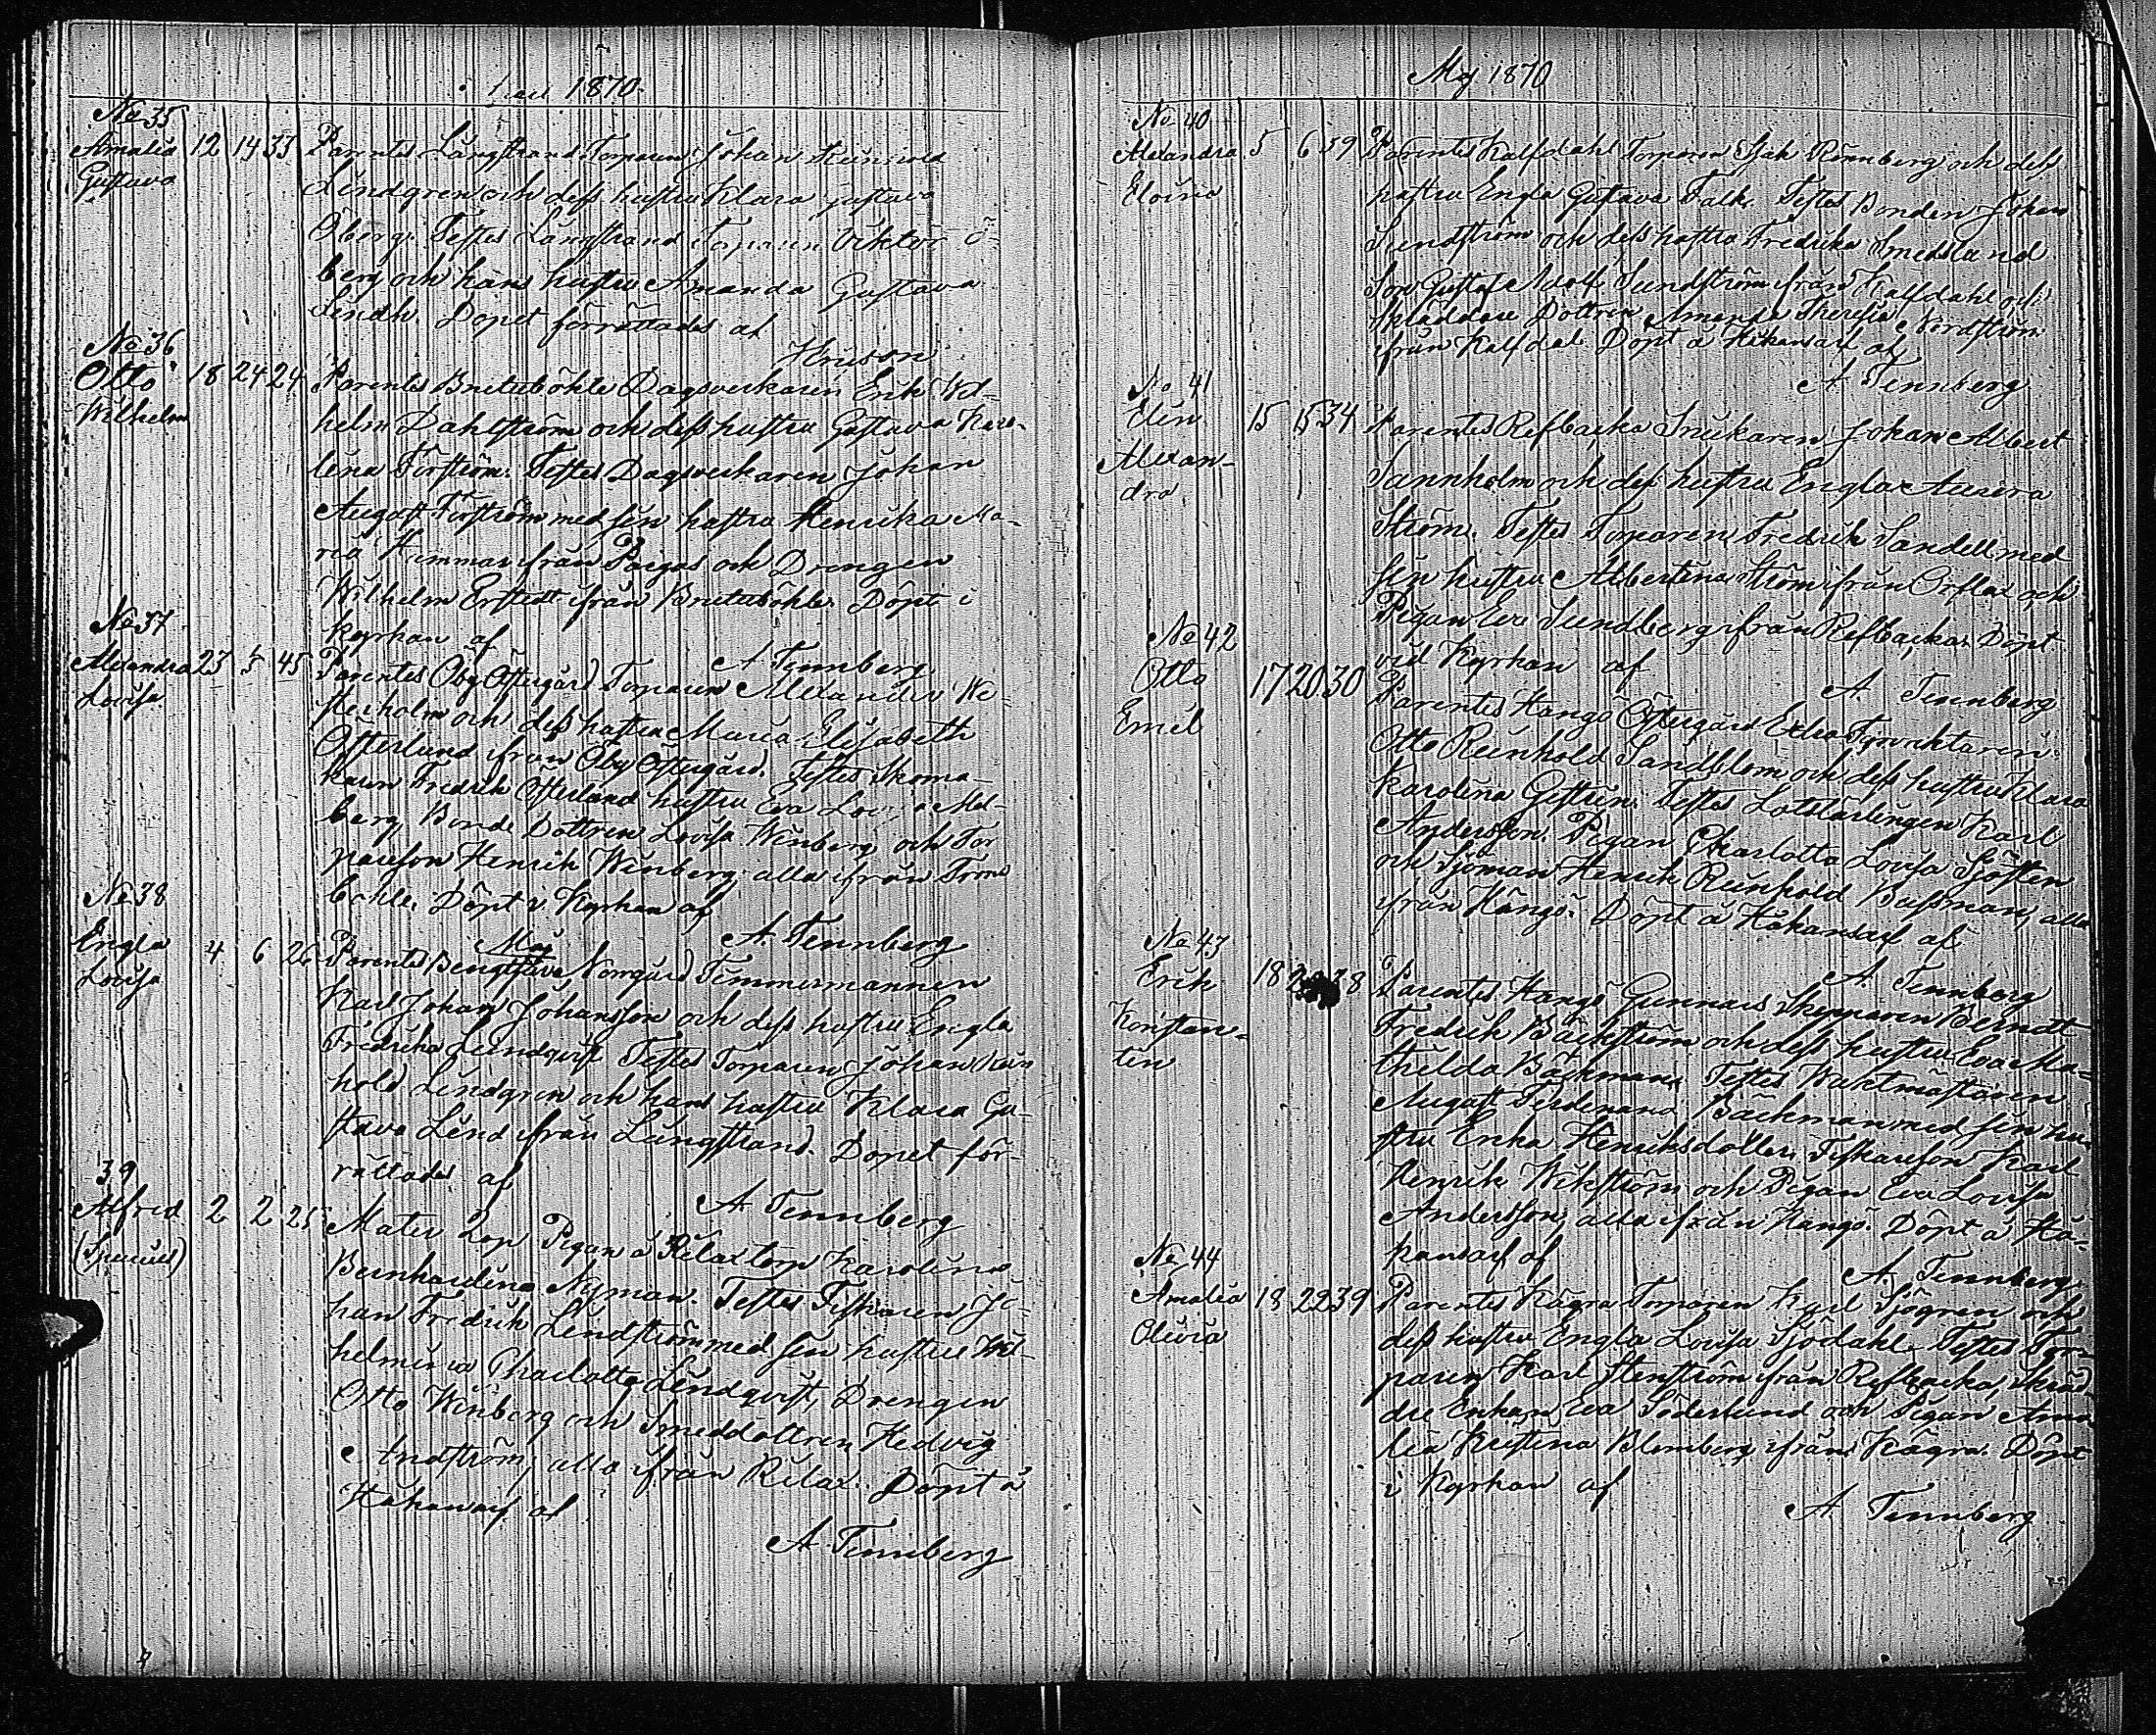 1870
No 35
Amalia 12 14 33 Parentes Långstrand Torparen Johan
Gustava
Lindgren och dess hustru Klara Gustava
Öberg. Testes Långstrand Torparen Viktor Ö-
berg och hans hustru Amanda Gustava
Lindh. Dopet förrättades af
No 36
Otto 18 24 24 Parentes Brutuböhle Dagsverkaren Erik Wil-
Wilhelm
helm Dahlström och dess hustru Gustava Karo-
lina Förström. Testes Dagsverkaren Johan
August Förström med sin hustru Henrika Ma-
ria Himmar ifrån och Drengen
Wilhelm Erstedt ifrån Brutuböhle. Döpt i
kyrkan af
A Tennberg
No 37
Alexandra 23 5 45 Parentes Öby Östergård Torparen Alexander We-
Lovisa
sterholm och dess hustru Maria Elisabeth
Österlund ifrån Öby Östergård. Testes Skoma-
karen Fredrik Österlund hustru Eva Lovisa Mel-
berg, Bonde Dottren Lovisa Winberg och Tor
pareson Henrik Winberg, alla ifrån Troms
böhle. Döpt i Kyrkan af
A. Tennberg
No 38
Maj
Engla 4 6 26 Parentes Norrgård Timmermannen
Lovisa
Karl Johan Johansson och dess hustru Engla
Fredrika Lindqvist Testes Torparen Johan Rein
hold Lindgren och hans hustru Klara Gu-
stava Lind ifrån Långstrand. Dopet för-
rättades af
A Tennberg
39
Alfred 2 2 25 Mater Lösp Pigan å Rilax torp Karolina
(Spurius)
Bernhardina Nyman. Testes Fiskaren Jo-
han Fredrik Lindström med sin hustru Wil-
helmina Charlotta Lindqvist, Drengen
Otto Winberg och Smeddottren Hedvig
Lindström, alla ifrån Rilax. Döpt å
Håkansarf af
A Tennberg
Maj 1870
No 40
Alexandra 5 6 39 Parentes Kalfdahl Torparen Isak Rönnberg och dess
Elvira
hustru Engla Gustava Falk. Testes Bonden Johan
Sundström och dess hustru Fredrika Smedslund
Son Gustaf Adolf Sundström ifrån Kalfdahl och
Skräddare Dottren Amanda Theresia Nordström
ifrån Kalfdal Döpt å Håkansarf af
A. Tennberg
No 41
Elin 15 15 34 Parentes Refbacka Snickaren Johan Albert
Alexan-
dra
Sannholm och dess hustru Engla Aurora
Ström. Testes Torparen Fredrik Sandell med
sin hustru Albertina Ström ifrån Orslax och
Pigan Eva Sundberg ifrån Refbacka. Döpt
vid Kyrkan af
A. Tennberg
No 42
Otto 17 20 30 Parentes Hangö Östergård Extra Fyrvaktaren
Emil
Otto Reinhold Sandblom och dess hustru Klara
Karolina Gestrin. Testes Lotslärlingen Karl
Andersson. Pigan Charlotta Lovisa Sjösten
och Sjöman Henrik Reinhold Bussman, alla
ifrån Hangö. Döpt å Håkansarf af
A. Tennberg
No 43
Erik 18 38 Parentes Hangö Gunnars Skepparen Berndt
Konstan-
tin
Fredrik Bäckström och dess hustru Eva Ma-
thilda Bäckman. Testes Waktmästaren
August Ferdinand Bäckman med sin hu-
stru Erika Henriksdotter, Fiskareson Karl
Henrik Wikström och Pigan Eva Lovisa
Andersson, alla ifrån Hangö. Döpt å Hå-
kansarf af
A. Tennberg
No 44
Amalia 18 22 39 Parentes Kägra Torparen Karl Sjögren och
Olivia
dess hustru Engla Lovisa Sjödahl. Testes Tor-
paren Karl Stenström ifrån Refbacka, Skräd-
dre Enkan Eva Söderlund och Pigan Ama
lia Kristina Blomberg ifrån Kägra. Döpt
i Kyrkan af
A Tennberg